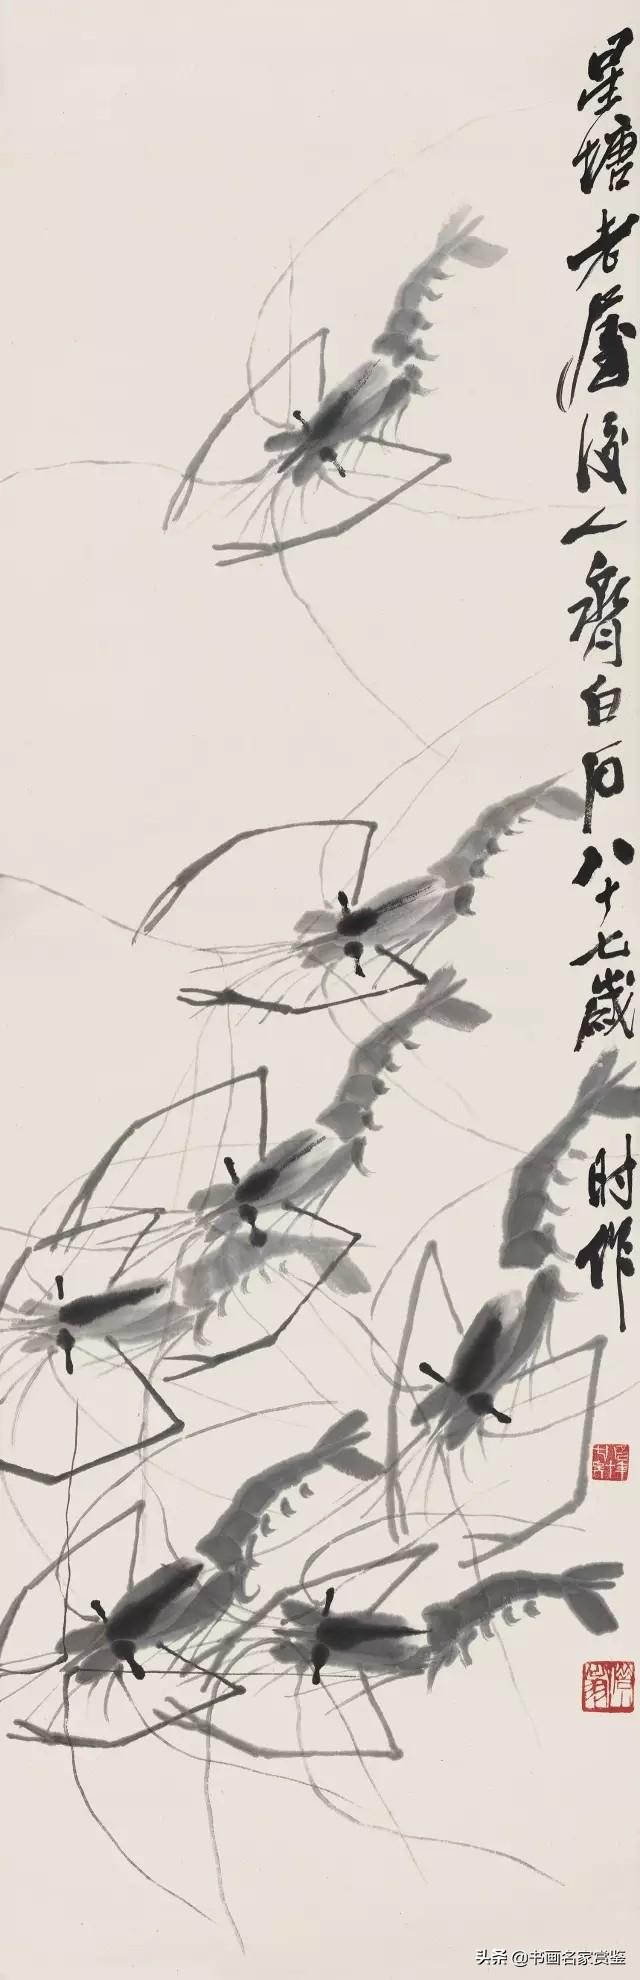 星塘老屋後人齊白石八十七歲时作
头条 @书画名家赏鉴